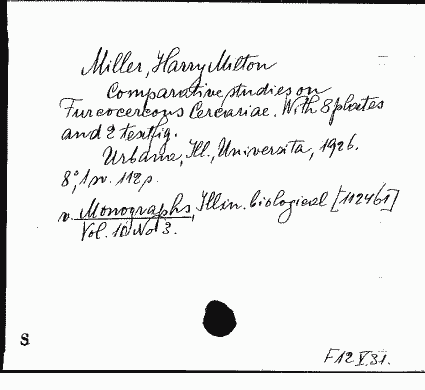 Miller, Harry Milton
Comparative studies on
Furcocercous Cercariae. With 8 plates
and 2 textfig.
Urbana, Ill., Universita, 1926.
8°, 1 p. 112 p.
v. Monographs, Illin. biological [112461]
Vol. 10 No 3.
S
F 12 V.31.